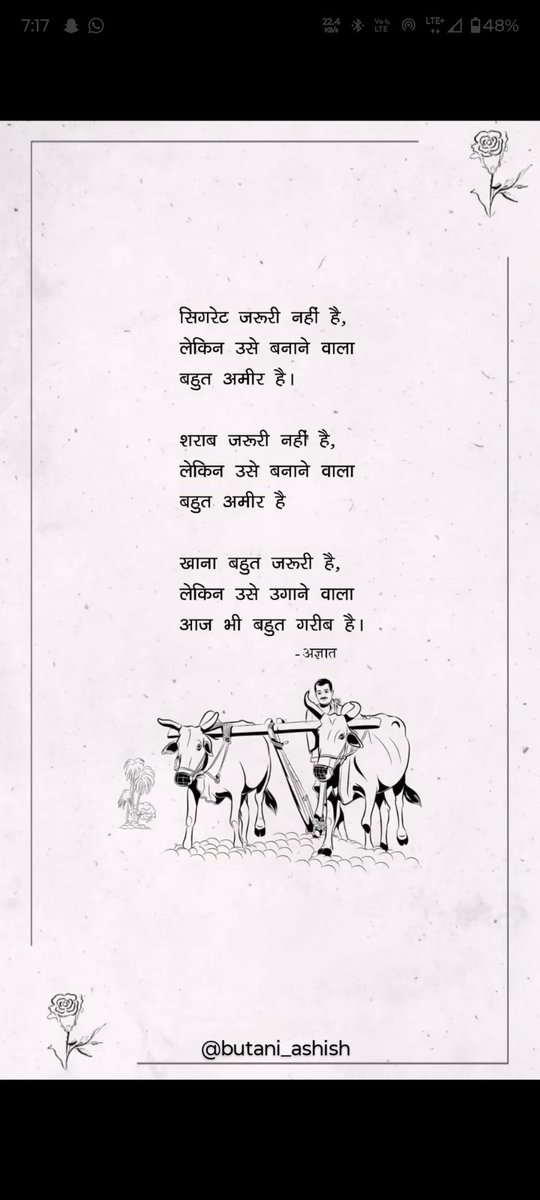 7:17
22.4 KB/s Vo) LTE LTE+ 48%
सिगरेट जरूरी नहीं है,
लेकिन उसे बनाने वाला
बहुत अमीर है।
शराब जरूरी नहीं है,
लेकिन उसे बनाने वाला
बहुत अमीर है
खाना बहुत जरूरी है,
लेकिन उसे उगाने वाला
आज भी बहुत गरीब है।
- अज्ञात
@butani_ashish